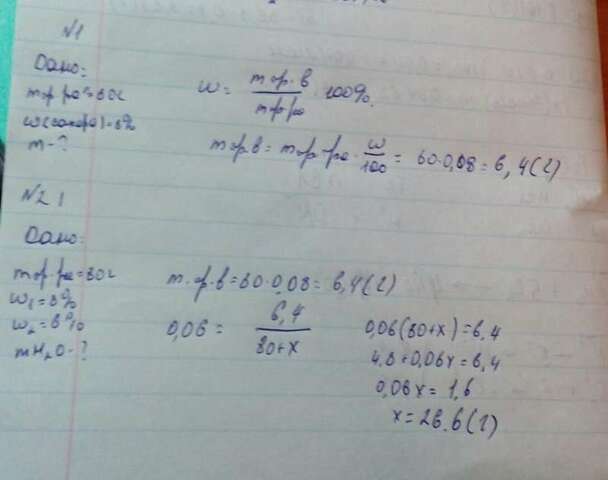 №1
Дано:
mр.ра=80г
w(сахара)=8%
m-?
w= mр.в / mр.ра 100%.
mр.в = mр-ра · w/100 = 80·0,08=6,4(г)
№2 1
Дано:
mр-ра=80г
w₁=8%
w₂=6%
mH₂O-?
m.р.в=80·0,08=6,4(г)
0,06 = 6,4 / 80+x
0,06(80+x)=6,4
4,8+0,06x=6,4
0,06x=1,6
x=26.6(г)